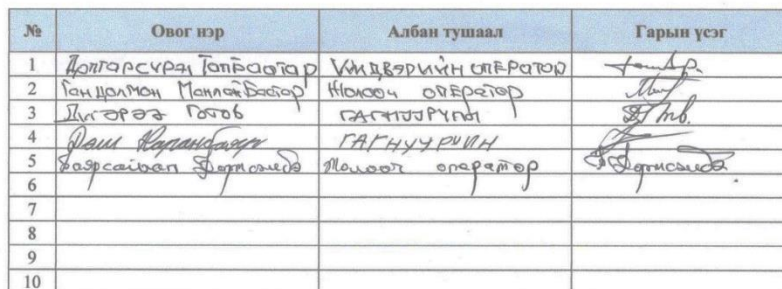 № Овог нэр Албан тушаал Гарын үсэг
1 Долгарсүрэн Галбаатар Үйлдвэрийн оператор
2 Гандолмон Манлайбаатар Жолооч оператор
3 Дүгэрээ Готов гагнуурчин
4 Даш Наранбаяр гагнуурчин
5 Баярсайхан Доржсэмбэ Жолооч оператор
6
7
8
9
10